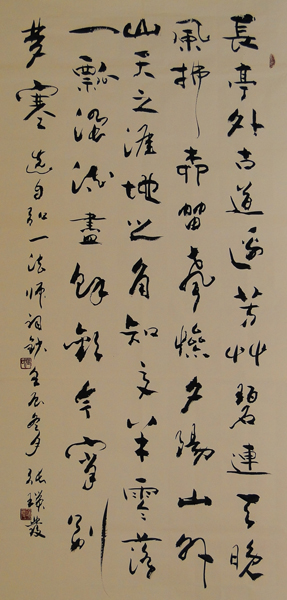 長亭外古道邊芳艸碧連天晚
風拂柳笛聲殘夕陽山外
山天之涯地之角知交半零落
一瓢濁酒盡餘歡今宵別
夢寒
选自弘一法師詞鈔